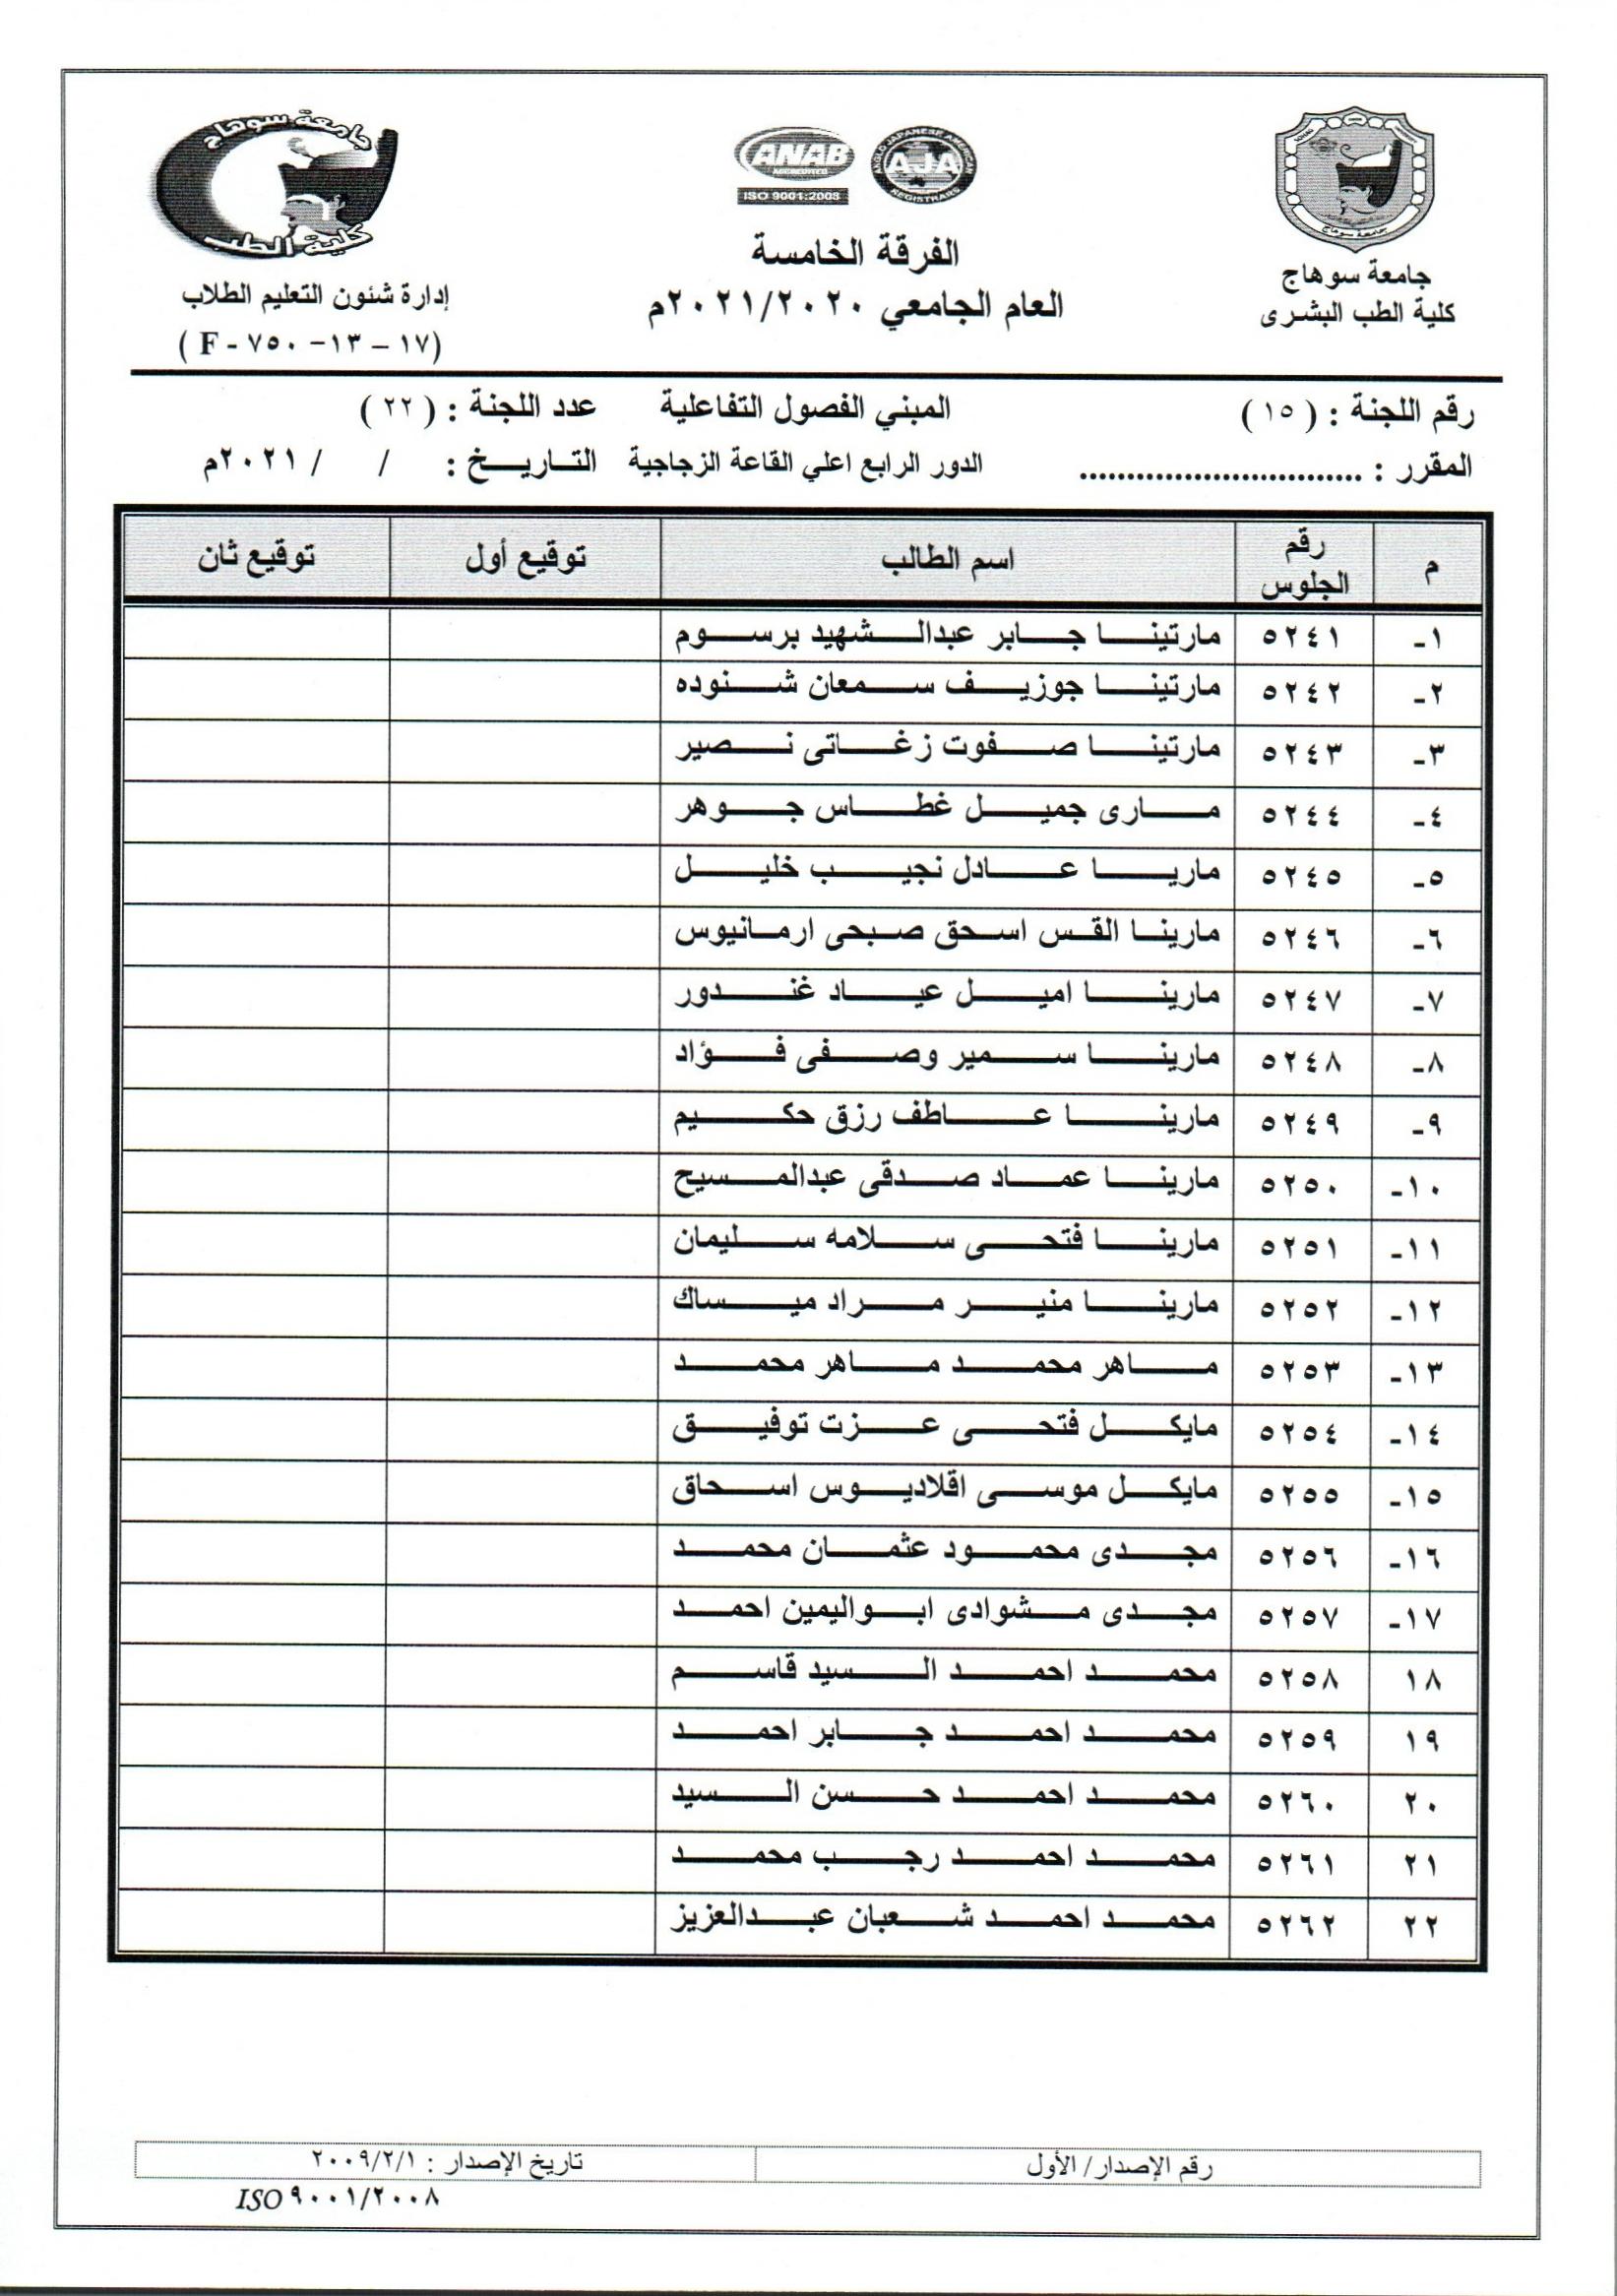 جامعة سوهاج
كلية الطب البشرى
ANAB
ACCREDITED
ISO 9001:2008
ANGLO JAPANESE AMERICAN
AJA
REGISTRARS
الفرقة الخامسة
العام الجامعي ٢٠٢٠/٢٠٢١م
جامعة سوهاج
كلية الطب
إدارة شئون التعليم الطلاب
(F - ٧٥٠ -١٣ - ١٧)
رقم اللجنة : ( ١٥ ) المبني الفصول التفاعلية عدد اللجنة : ( ٢٢ )
المقرر : .............................. الدور الرابع اعلي القاعة الزجاجية التاريخ : / / ٢٠٢١م
م رقم الجلوس اسم الطالب توقيع أول توقيع ثان
١- ٥٢٤١ مارتينا جابر عبدالشهيد برسوم
٢- ٥٢٤٢ مارتينا جوزيف سمعان شنوده
٣- ٥٢٤٣ مارتينا صفوت زغاتى نصير
٤- ٥٢٤٤ مارى جميل غطاس جوهر
٥- ٥٢٤٥ ماريا عادل نجيب خليل
٦- ٥٢٤٦ مارينا القس اسحق صبحى ارمانيوس
٧- ٥٢٤٧ مارينا اميل عياد غندور
٨- ٥٢٤٨ مارينا سمير وصفى فؤاد
٩- ٥٢٤٩ مارينا عاطف رزق حكيم
١٠- ٥٢٥٠ مارينا عماد صدقى عبدالمسيح
١١- ٥٢٥١ مارينا فتحى سلامه سليمان
١٢- ٥٢٥٢ مارينا منير مراد ميساك
١٣- ٥٢٥٣ ماهر محمد ماهر محمد
١٤- ٥٢٥٤ مايكل فتحى عزت توفيق
١٥- ٥٢٥٥ مايكل موسى اقلاديوس اسحاق
١٦- ٥٢٥٦ مجدى محمود عثمان محمد
١٧- ٥٢٥٧ مجدى مشوادى ابواليمين احمد
١٨ ٥٢٥٨ محمد احمد السيد قاسم
١٩ ٥٢٥٩ محمد احمد جابر احمد
٢٠ ٥٢٦٠ محمد احمد حسن السيد
٢١ ٥٢٦١ محمد احمد رجب محمد
٢٢ ٥٢٦٢ محمد احمد شعبان عبدالعزيز
رقم الإصدار/ الأول تاريخ الإصدار : ٢٠٠٩/٢/١
ISO ٩٠٠١/٢٠٠٨